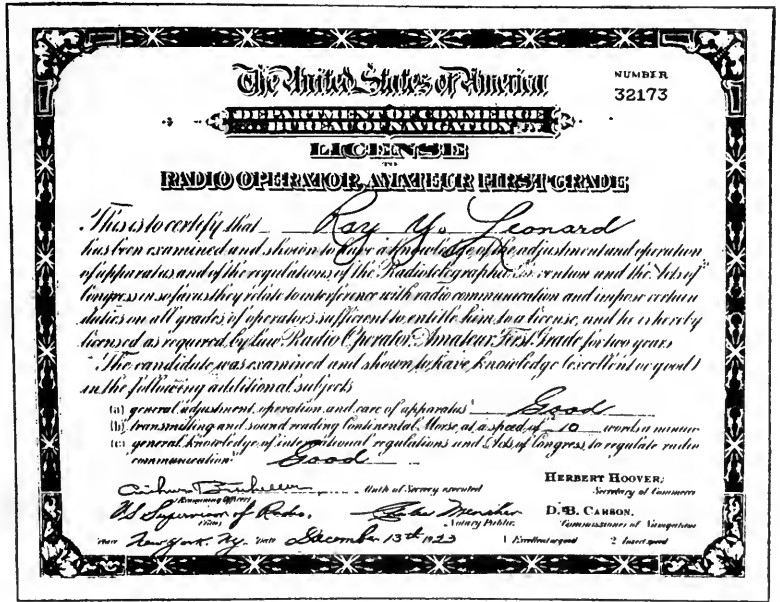 The United States of America
NUMBER
32173
DEPARTMENT OF COMMERCE
BUREAU OF NAVIGATION
LICENSE
TO
RADIO OPERATOR, AMATEUR FIRST GRADE
This is to certify that Ray Y. Leonard
has been examined and shown to have a knowledge of the adjustment and operation
of apparatus and of the regulations of the Radiotelegraphic Convention and the Acts of
Congress in so far as they relate to interference with radio communication and impose certain
duties on all grades of operators sufficient to entitle him to a license, and he is hereby
licensed as required by law Radio Operator, Amateur First Grade for two years
The candidate was examined and shown to have knowledge (excellent or good)
in the following additional subjects
(a) general adjustment, operation, and care of apparatus Good
(b) transmitting and sound reading Continental Morse, at a speed of 10 words a minute
(c) general knowledge of international regulations and Acts of Congress to regulate radio
communication Good
HERBERT HOOVER,
Secretary of Commerce
Oath of Secrecy executed
Examining Officer
US Supervisor of Radio.
Notary Public.
D. B. CARSON,
Commissioner of Navigation
Place New York. Ny. Date December 13th 1923 1 Excellent or good 2 Insert speed